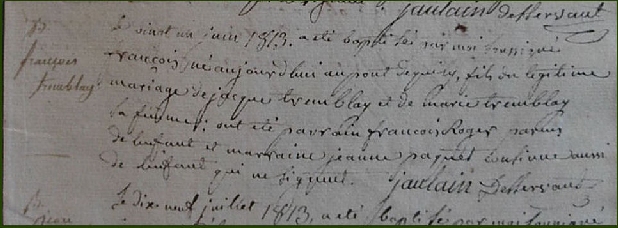 jaulain desservant
B
françois
tremblay
Le vingt un juin 1813. a été baptisé par moi soussigné
françois, né aujourd'hui au pont de , fils du légitime
mariage de jacque tremblay et de marie tremblay
sa femme; ont été parrain françois Roger parein
de l'enfant et marraine jeanne paquet cousine aussi
de l'enfant qui ne signent. jaulain Desservant
B
Le dix neuf juillet 1813. a été baptisé par moi soussigné